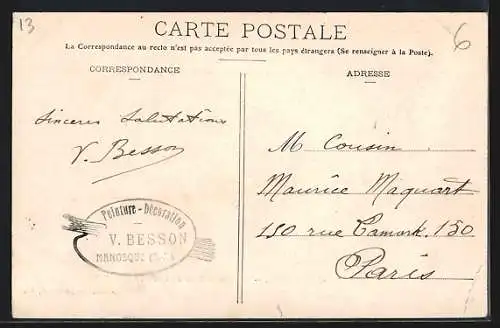 13
6
CARTE POSTALE
La Correspondance au recto n'est pas acceptée par tous les pays étrangers (Se renseigner à la Poste).
CORRESPONDANCE
ADRESSE
Sinceres Salutations
V. Besson
Peinture - Décoration
V. BESSON
MANOSQUE
M Cousin
Maurice Maquart
150 rue Lamark. 150
Paris